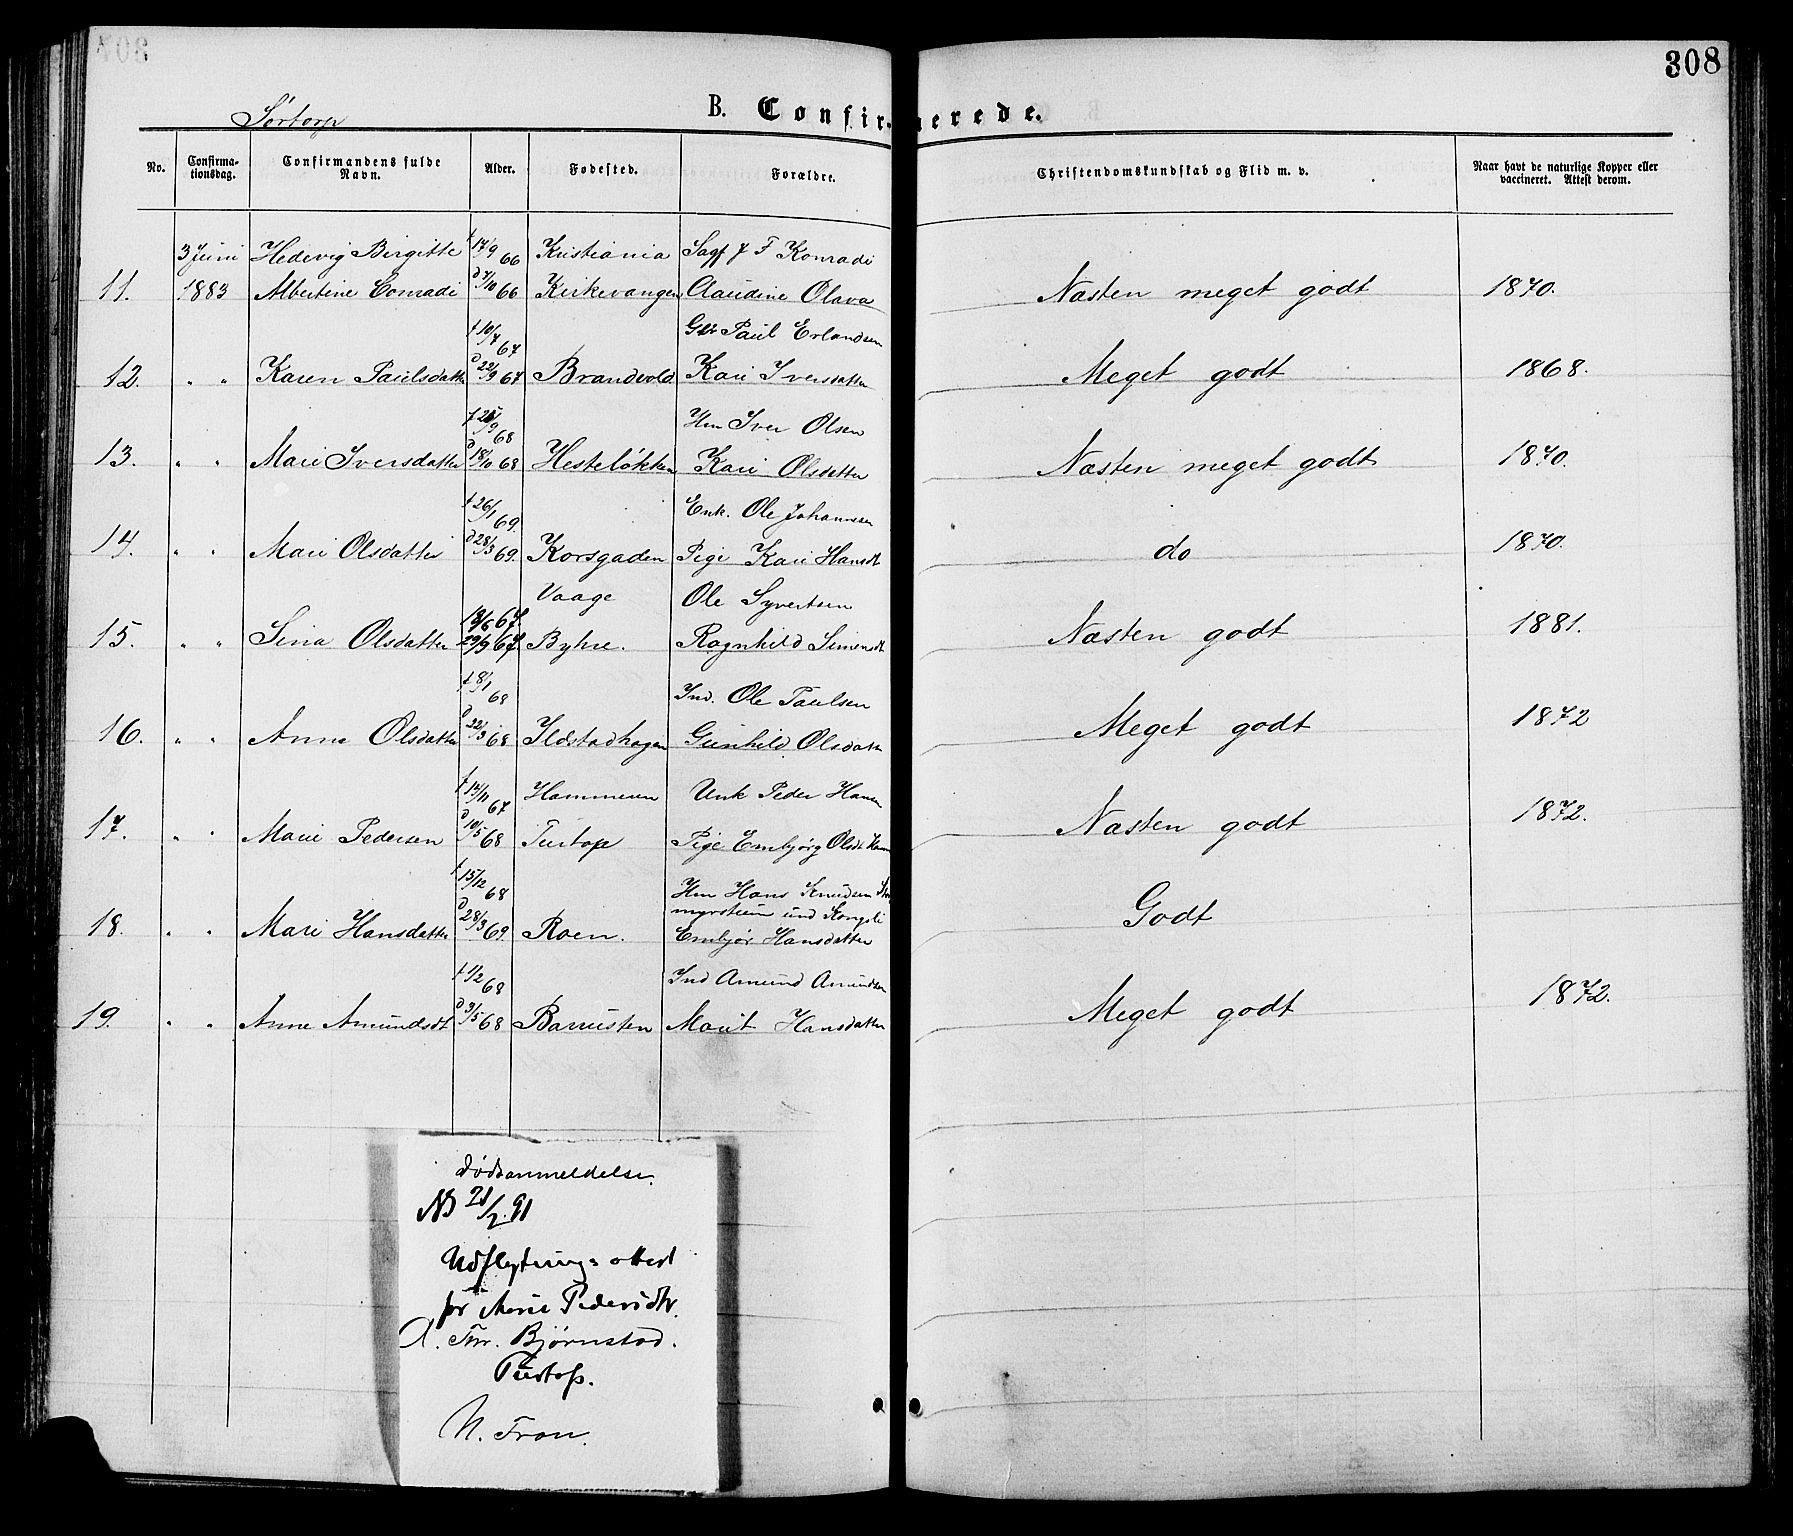 308
Sørtorp
B. Confirmerede.
No. Confirmationsdag. Confirmandens fulde Navn. Alder. Fødested. Forældre. Christendomskundskab og Flid m. v. Naar havt de naturlige Kopper eller vaccineret. Attest derom.
3 Juni Hedevig Birgitte f 17/9 66 Kristiania Sagf J F Konradi
11. 1883 Albertine Conradi d 7/10 66 Kirkevangen Claudine Olava Næsten meget godt 1870.
f 10/7 67 Paul Erlandsen
12. " " Karen Paulsdatter d 22/9 67 Brandvold Kari Iversdatter Meget godt 1868.
68 Hm Iver Olsen
13. " " Mari Iversdatter d 18/10 68 Hesteløkken Kari Olsdatter Næsten meget godt 1870.
f 26/1 69. Enk. Ole Johannsen
14. " " Mari Olsdatter d 28/3 69. Korsgaden Pige Kari Hansdt do 1870.
Vaage Ole Syvertsen
15. " " Sina Olsdatter 29/9 67 Byhre. Ragnhild Simensdt Næsten godt 1881.
f 8/1 68 Ind. Ole Paulsen
16. " " Anne Olsdatter d 22/3 68 Ildstadhagen Gunhild Olsdatter Meget godt 1872
f 13/11 67 Hammeren Unk Peder Hansen
17. " " Marie Pedersen d 10/5 68 Tustop Pige Embjørg Olsdt Næsten godt 1872.
f 15/12 68 Hm Hans Knudsen
myrstuen und Kongsli
18. " " Mari Hansdatter d 28/3 69 Roen. Embjør Hansdatter Godt
f 1/2 68 Ind Amund Amundsen
19. " " Anne Amundsdt d 3/5 68 Barusten Marit Hansdatter Meget godt 1872.
Dødsanmeldelse.
NB 21/2. 91
Udflytnings = attest
for Marie Pedersdtr.
A. Thr. Bjørnstad.
Tustop.
N. Fron.